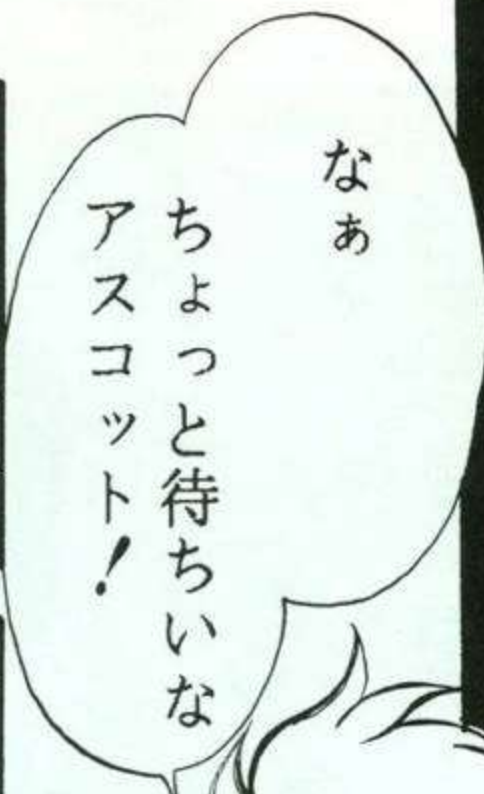 なぁ
ちょっと待ちいな
アスコット!